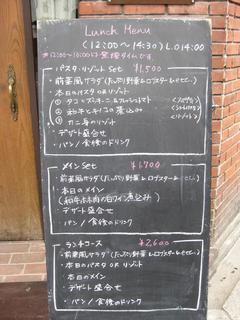 Lunch Menu
(12:00〜14:30) L.O 14:00
※12:00〜14:00は禁煙タイムです
パスタ・リゾット Set ¥1,500
・前菜風サラダ(たっぷり野菜&ロブスター&etc…)
・本日のパスタ OR リゾット
① タコとズッキーニ&フレッシュトマト
②
③ カニ 海のリゾット
・デザート盛合せ
・パン/食後のドリンク
メイン Set ¥1700
・前菜風サラダ(たっぷり野菜&ロブスター&etc…)
・本日のメイン
(和牛ホホ肉の白ワイン煮込み)
・デザート盛合せ
・パン/食後のドリンク
ランチコース ¥2,600
・前菜風サラダ(たっぷり野菜&ロブスター&etc…)
・本日のパスタ OR リゾット
・本日のメイン
・デザート盛合せ
・パン/食後のドリンク